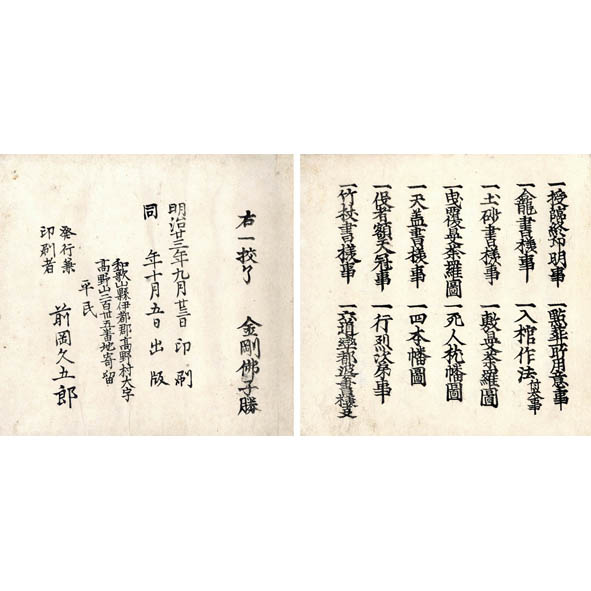 一授臨終印明事
一龕書様事
一土砂書様事
一曳覆曼荼羅圖
一天盖書様事
一役者額天冠事
一竹杖書様事
一點葬取用意事
一入棺作法
一敷曼荼羅圖
一死人枕幡圖
一四本幡圖
一行烈次第事
一六道率都婆書様事
右一挍了 金剛佛子勝
明治廿三年九月廿三日印刷
同 年十月五日出版
和歌山縣伊都郡高野村大字
高野山二百卅五番地寄留
平民
發行兼
印刷者
前岡久五郎